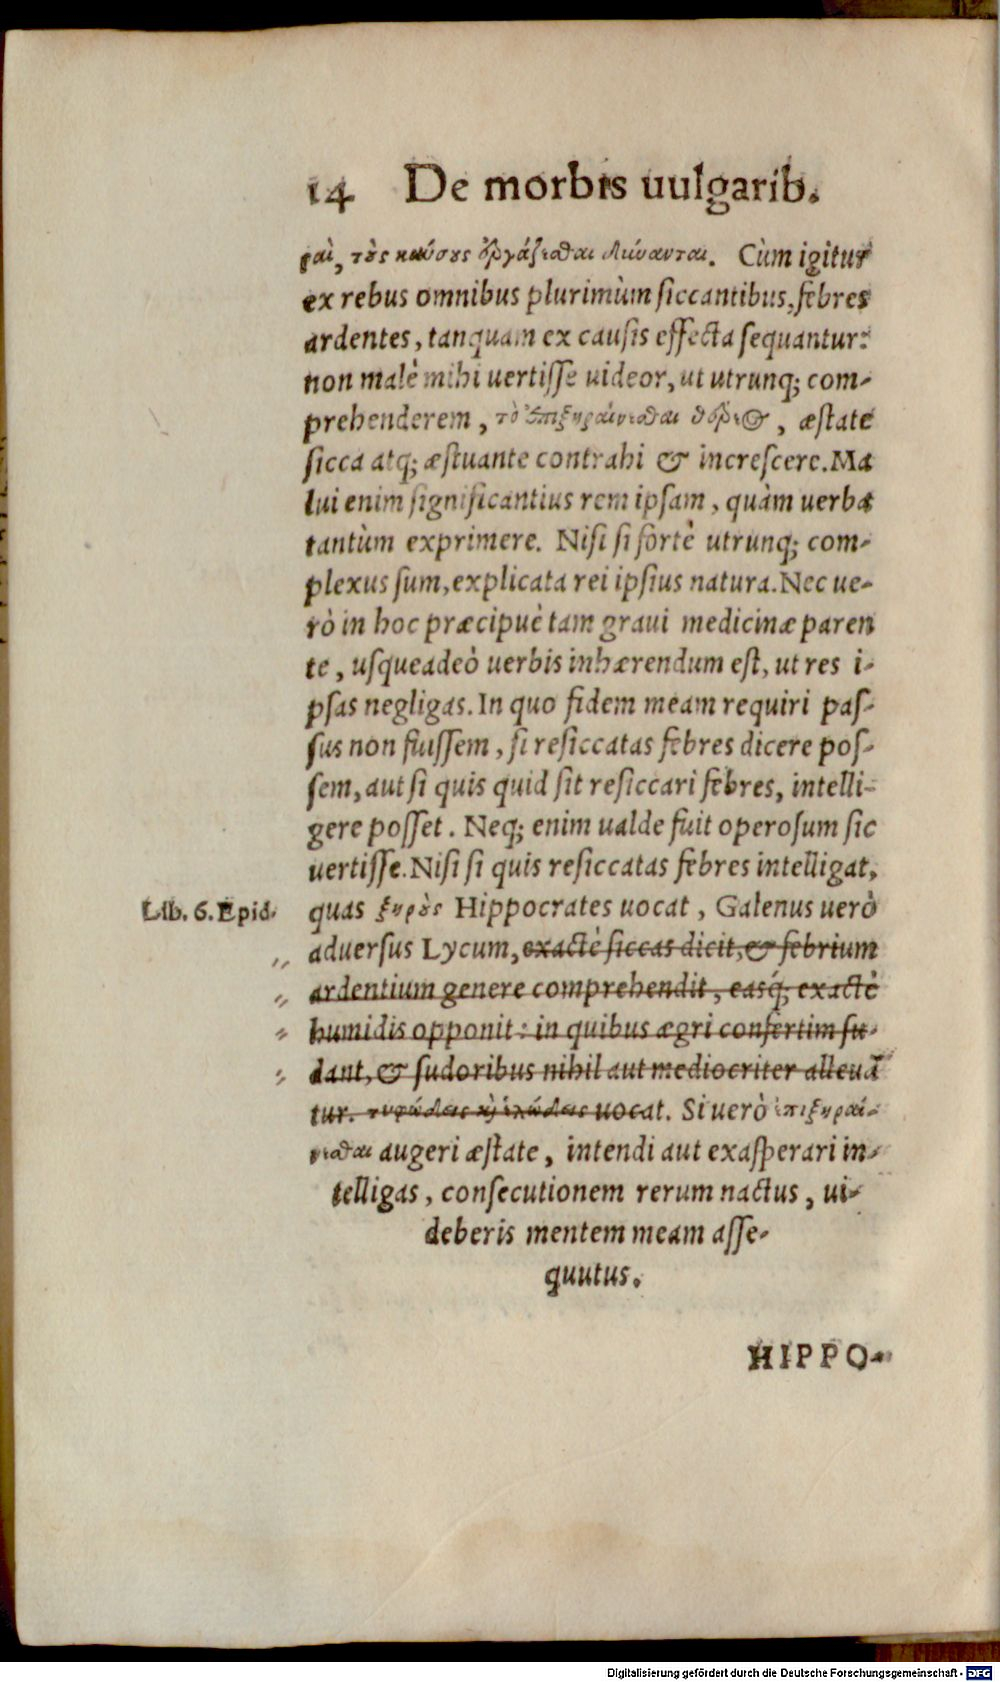 14 De morbis uulgarib.
ραὶ, τοὺς καύσους ἐργάζεσθαι δύνανται. Cùm igitur
ex rebus omnibus plurimùm siccantibus, febres
ardentes, tanquam ex causis effecta sequantur:
non malè mihi uertisse uideor, ut utrunq; com-
prehenderem, τὸ ἐπιξηραίνεσθαι θέρε&, æstate
sicca atq; æstuante contrahi & increscere. Ma
lui enim significantius rem ipsam, quàm uerba
tantùm exprimere. Nisi si fortè utrunq; com-
plexus sum, explicata rei ipsius natura. Nec ue-
rò in hoc præcipuè tam graui medicinæ paren
te, usqueadeò uerbis inhærendum est, ut res i-
psas negligas. In quo fidem meam requiri pas-
sus non fuissem, si resiccatas febres dicere pos-
sem, aut si quis quid sit resiccari febres, intelli-
gere posset. Neq; enim ualde fuit operosum sic
uertisse. Nisi si quis resiccatas febres intelligat,
Lib. 6. Epid.
quas ξηροὺς Hippocrates uocat, Galenus uerò
aduersus Lycum, exactè siccas dicit, & febrium
ardentium genere comprehendit, easq́; exactè
humidis opponit: in quibus ægri confertim su-
dant, & sudoribus nihil aut mediocriter alleuā
tur. τυφώδεις καὶ ἑλώδεις uocat. Si uerò ἐπιξηραί-
νεσθαι augeri æstate, intendi aut exasperari in-
telligas, consecutionem rerum nactus, ui-
deberis mentem meam asse-
quutus.
HIPPO-
Digitalisierung gefördert durch die Deutsche Forschungsgemeinschaft - DFG